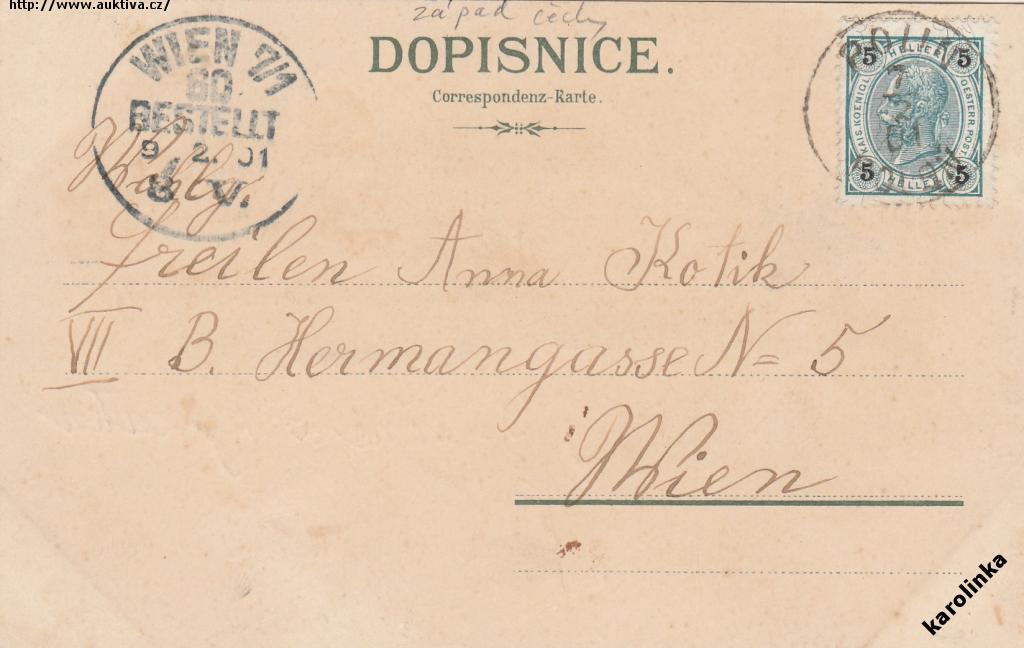 http://www.auktiva.cz/
západ čechy
DOPISNICE.
Correspondenz-Karte.
WIEN 7/1
60
BESTELLT
9 2. 01
8 V.
5 HELLER 5
KAIS. KOENIGL. OESTERR. POST
5 HELLER 5
7
01
Freilen Anna Kotik
VII B. Hermangasse N= 5
Wien
karolinka